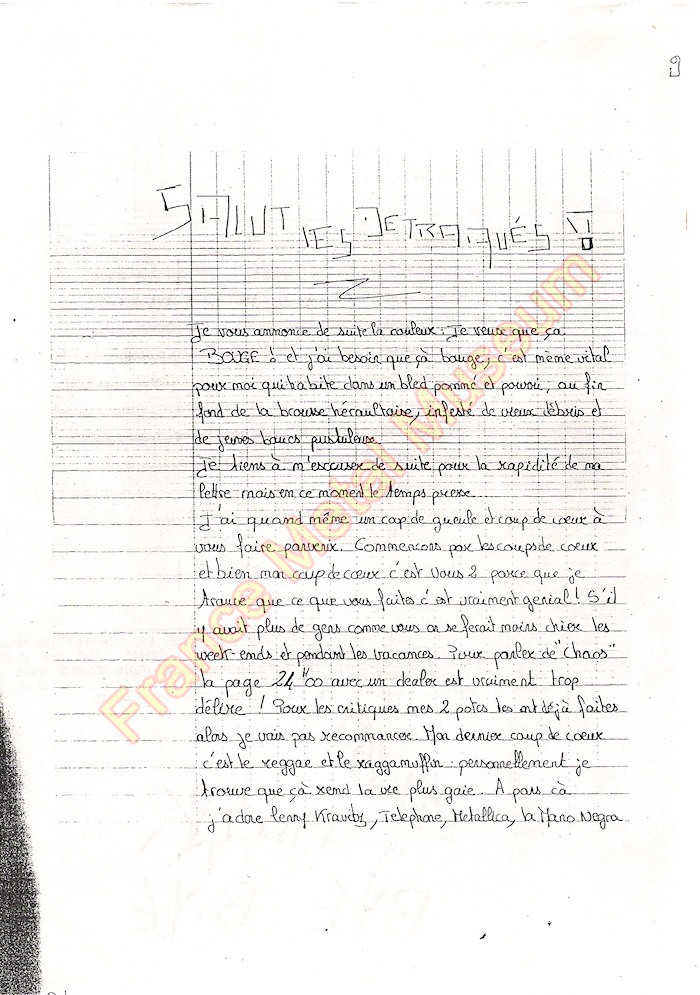 9
SALUT LES DETRAQUÉS !
Je vous annonce de suite la couleur : Je veux que ça
BOUGE ! et j'ai besoin que çà bouge, c'est même vital
pour moi qui habite dans un bled pommé et pourri, au fin
fond de la brousse héraultaise, infesté de vieux débris et
de jeunes boucs pustuleux
Je tiens à m'escuser de suite pour la rapidité de ma
lettre mais en ce moment le temps presse...
J'ai quand même un cap de gueule et coup de coeur à
vous faire parvenir. Commencons par les coups de coeur
et bien mon coup de coeur c'est vous 2 parce que je
trouve que ce que vous faites c'est vraiment genial ! S'il
y avait plus de gens comme vous on se ferait moins chier les
week-ends et pendant les vacances. Pour parler de "Chaos"
la page 24H00 avec un dealer est vraiment trop
délire ! Pour les critiques mes 2 potes les ont déjà faites
alors je vais pas recommancer. Mon dernier coup de coeur
c'est le reggae et le raggamuffin : personnellement je
trouve que çà rend la vie plus gaie. A pars cà
j'adore Lenny Kravitz, Telephone, Metallica, la Mano Negra
France Metal Museum